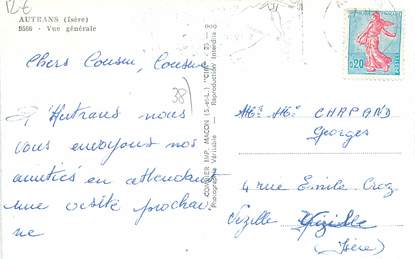 12€
AUTRANS (Isère)
8566 - Vue générale
Chers Cousin, Cousine
38)
d'Autrans nous
vous envoyons nos
amitiés en attendant
une visite prochai
ne
COMBIER IMP. MACON (S.-et-L.) "CIM"
Photographie Véritable - Reproduction Interdite
0,20
Mr Me CHAPAND
Georges
4 rue Emile Croz
Vizille Vizille
(Isère)